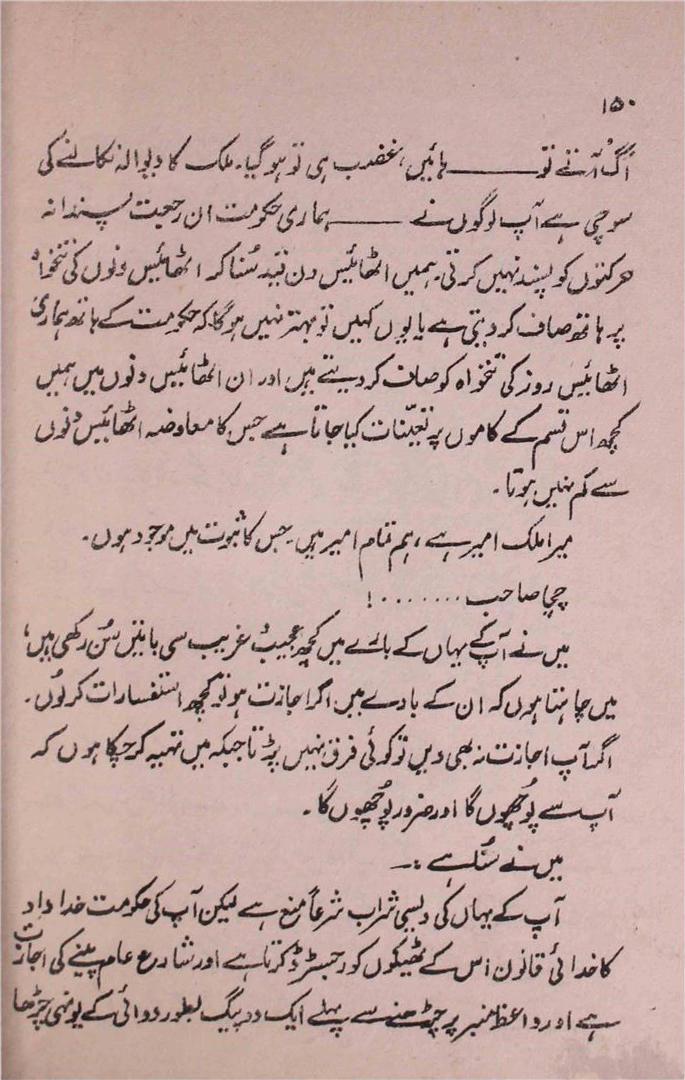 ۱۵۰
اُگ آئے تو ——— ہائیں، غضب ہی تو ہو گیا۔ ملک کا دیوالہ نکالنے کی
سوچی ہے آپ لوگوں نے ——— ہماری حکومت ان رجعت پسندانہ
حرکتوں کو پسند نہیں کرتی۔ ہمیں اٹھائیس دن قید سُنا کر اٹھائیس دنوں کی تنخواہ
پر ہاتھ صاف کر دیتی ہے یا یوں کہیں تو بہتر نہیں ہو گا کہ حکومت کے ہاتھ ہماری
اٹھائیس روز کی تنخواہ کو صاف کر دیتے ہیں اور ان اٹھائیس دنوں میں ہمیں
کچھ اس قسم کے کاموں پر تعیّنات کیا جاتا ہے جس کا معاوضہ اٹھائیس دنوں
سے کم نہیں ہوتا۔
میرا ملک امیر ہے، ہم تمام امیر ہیں۔ جس کا ثبوت میں موجود ہوں۔
چچا صاحب .......!
میں نے آپ کے یہاں کے بارے میں کچھ عجیب و غریب سی باتیں سُن رکھی ہیں،
میں چاہتا ہوں کہ ان کے بارے میں اگر اجازت ہو تو کچھ استفسارات کر لُوں۔
اگر آپ اجازت نہ بھی دیں تو کوئی فرق نہیں پڑتا جبکہ میں تہیہ کر چکا ہوں کہ
آپ سے پُوچھوں گا اور ضرور پُوچھوں گا۔
میں نے سُنا ہے :۔
آپ کے یہاں کی دیسی شراب شرعاً منع ہے لیکن آپ کی حکومت خداداد
کا خدائی قانون اس کے ٹھیکوں کو رجسٹرڈ کرتا ہے اور شارع عام پینے کی اجازت
ہے اور واعظ منبر پر چڑھنے سے پہلے ایک دو پیگ بطور دوائی کے یونہی چڑھا